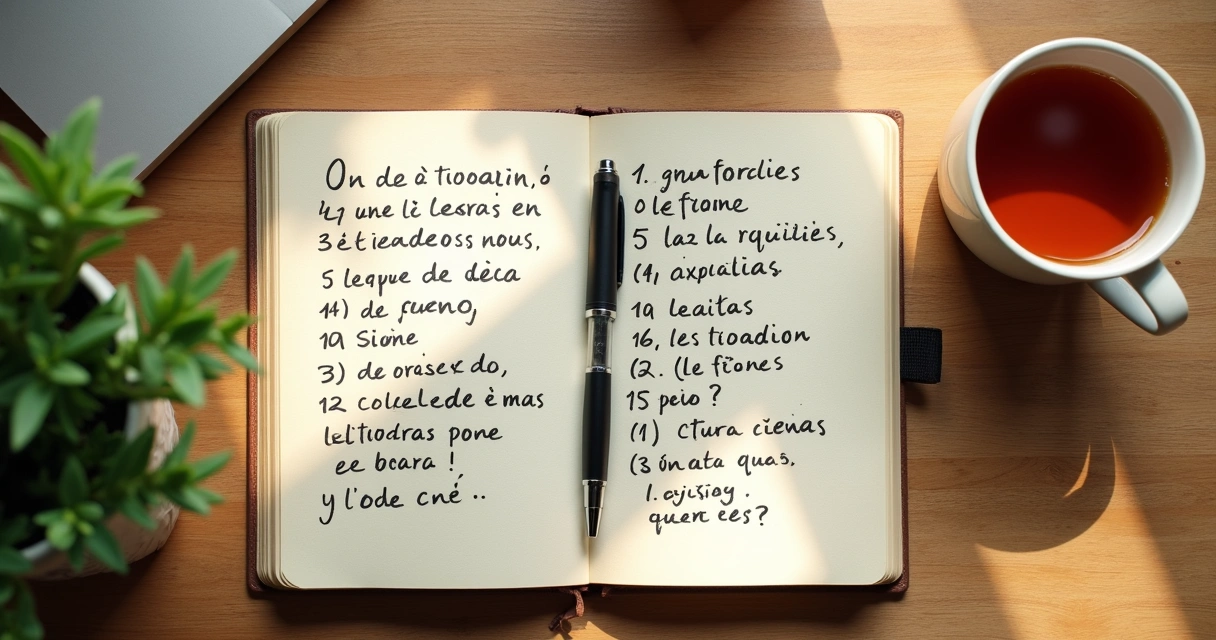 On de à tiooalin, ó
une lè lesras en
3 étieadeoss nous,
5 leqpue de dèca
14) de
10 Sióne
3) de orisex do,
12 colcelede èmas
leltiodras pone
ee bcara !
y l'ode cné ..
1. gnu forclies
o le frome
5 laz la rquiliés,
(4, axpialias.
19 leaitas
16, les tioadion
(2. (le fiones
15 peio ?
(1) ctura cienas
(3 ónata quas.
1.
quert ees?